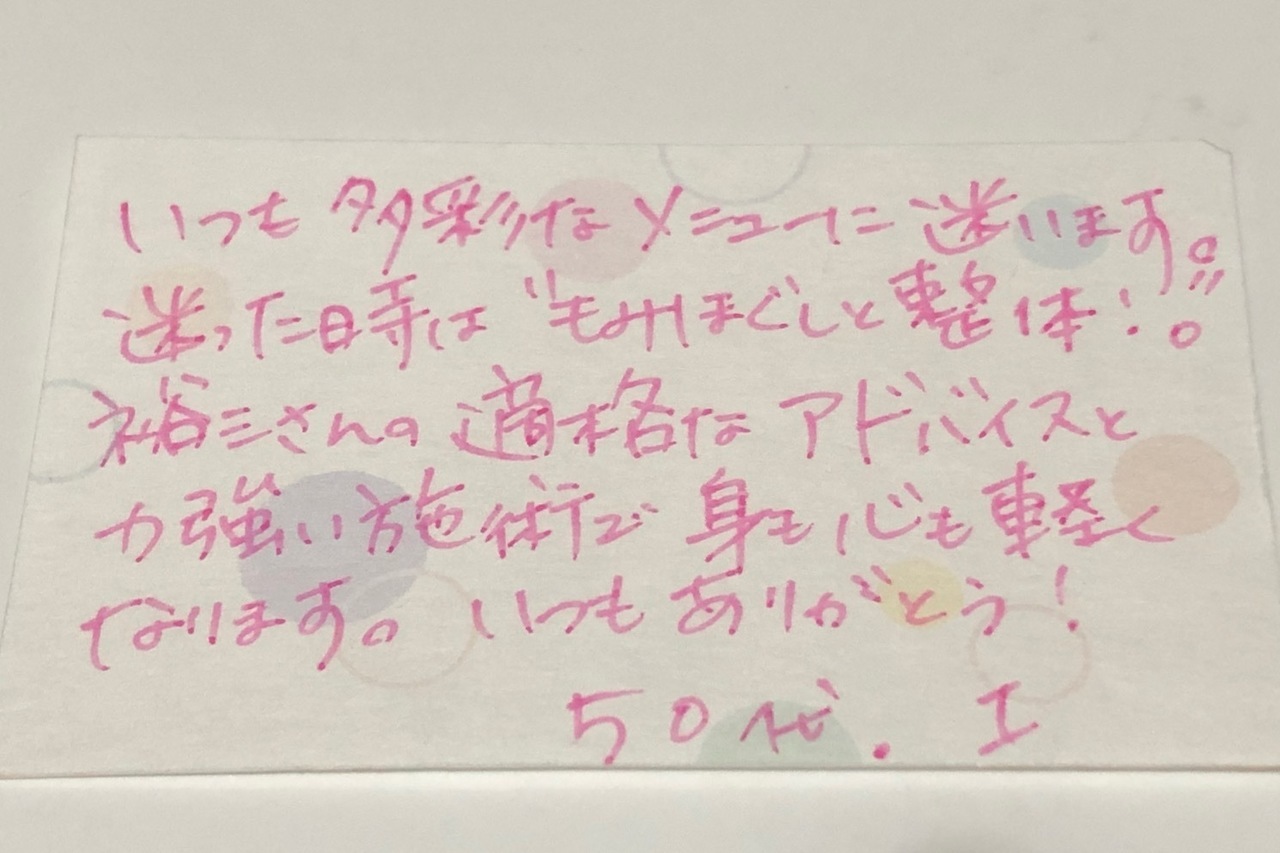 いつも多彩なメニューに迷います。
迷った時は"もみほぐしと整体!"。
裕三さんの適格なアドバイスと
力強い施術で身も心も軽く
なります。いつもありがとう!
50代. I